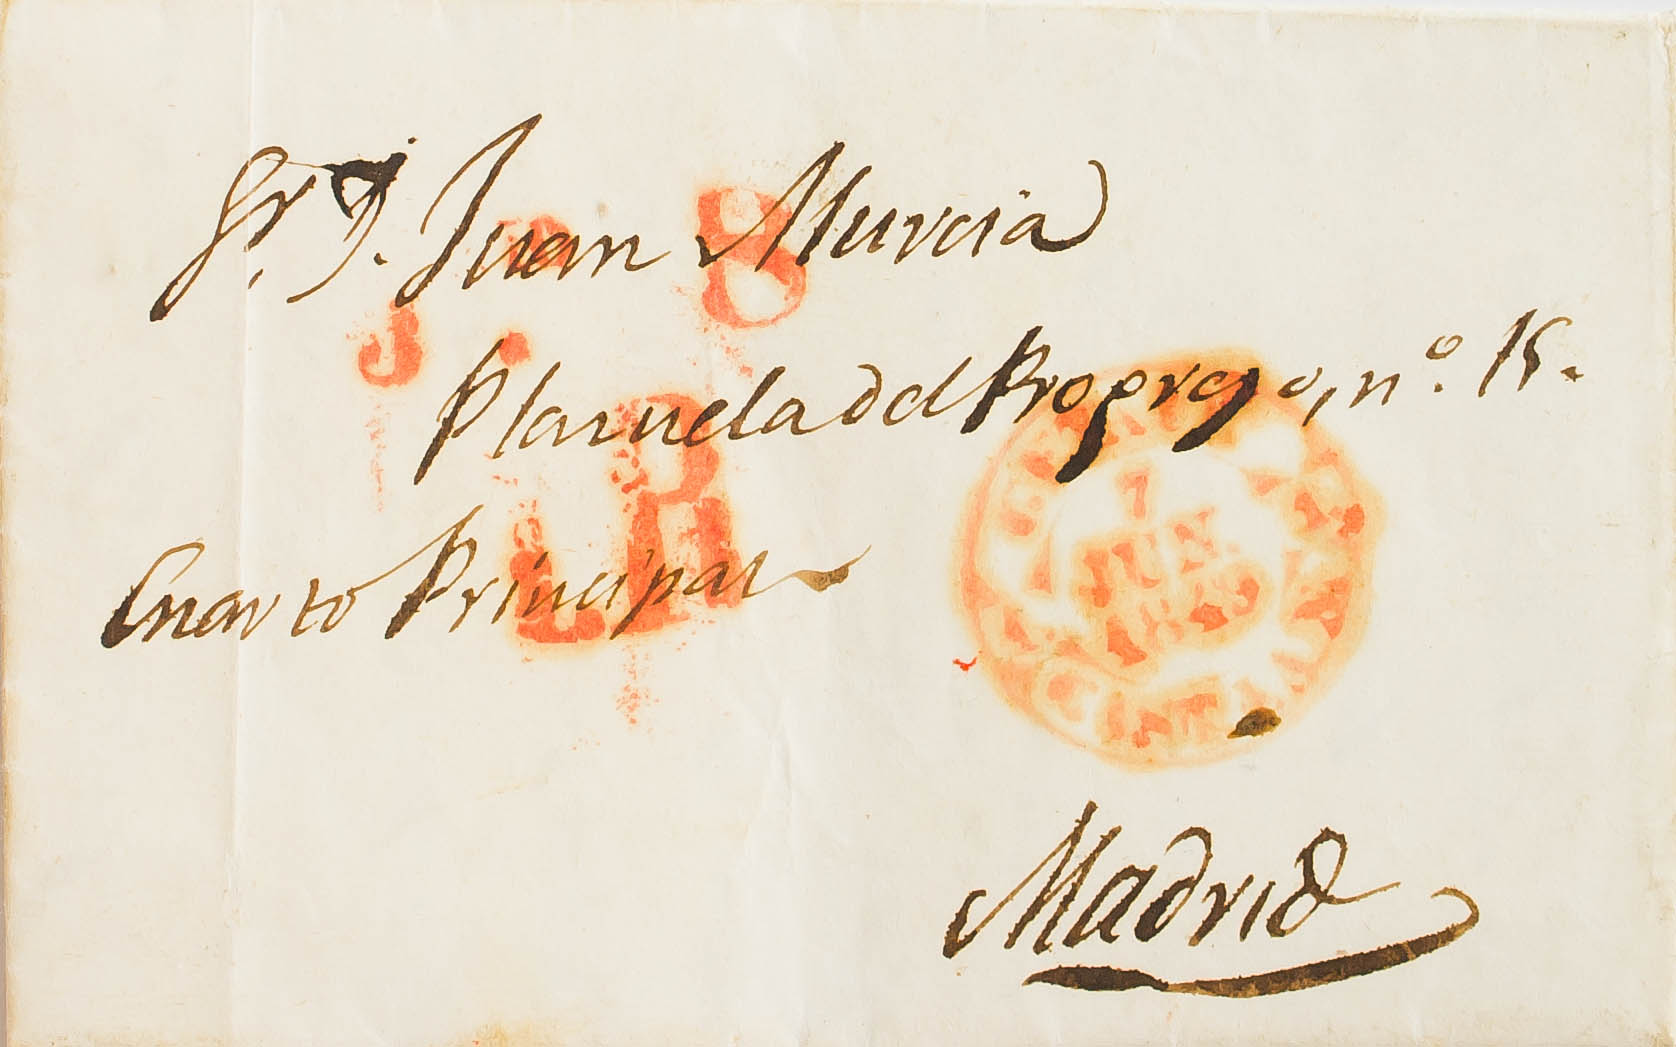 Sr. D. Juan Murcia
8
Plazuela del Progreso, nº. 15.
Cuarto Principal
7
JUN.
1849
Madrid